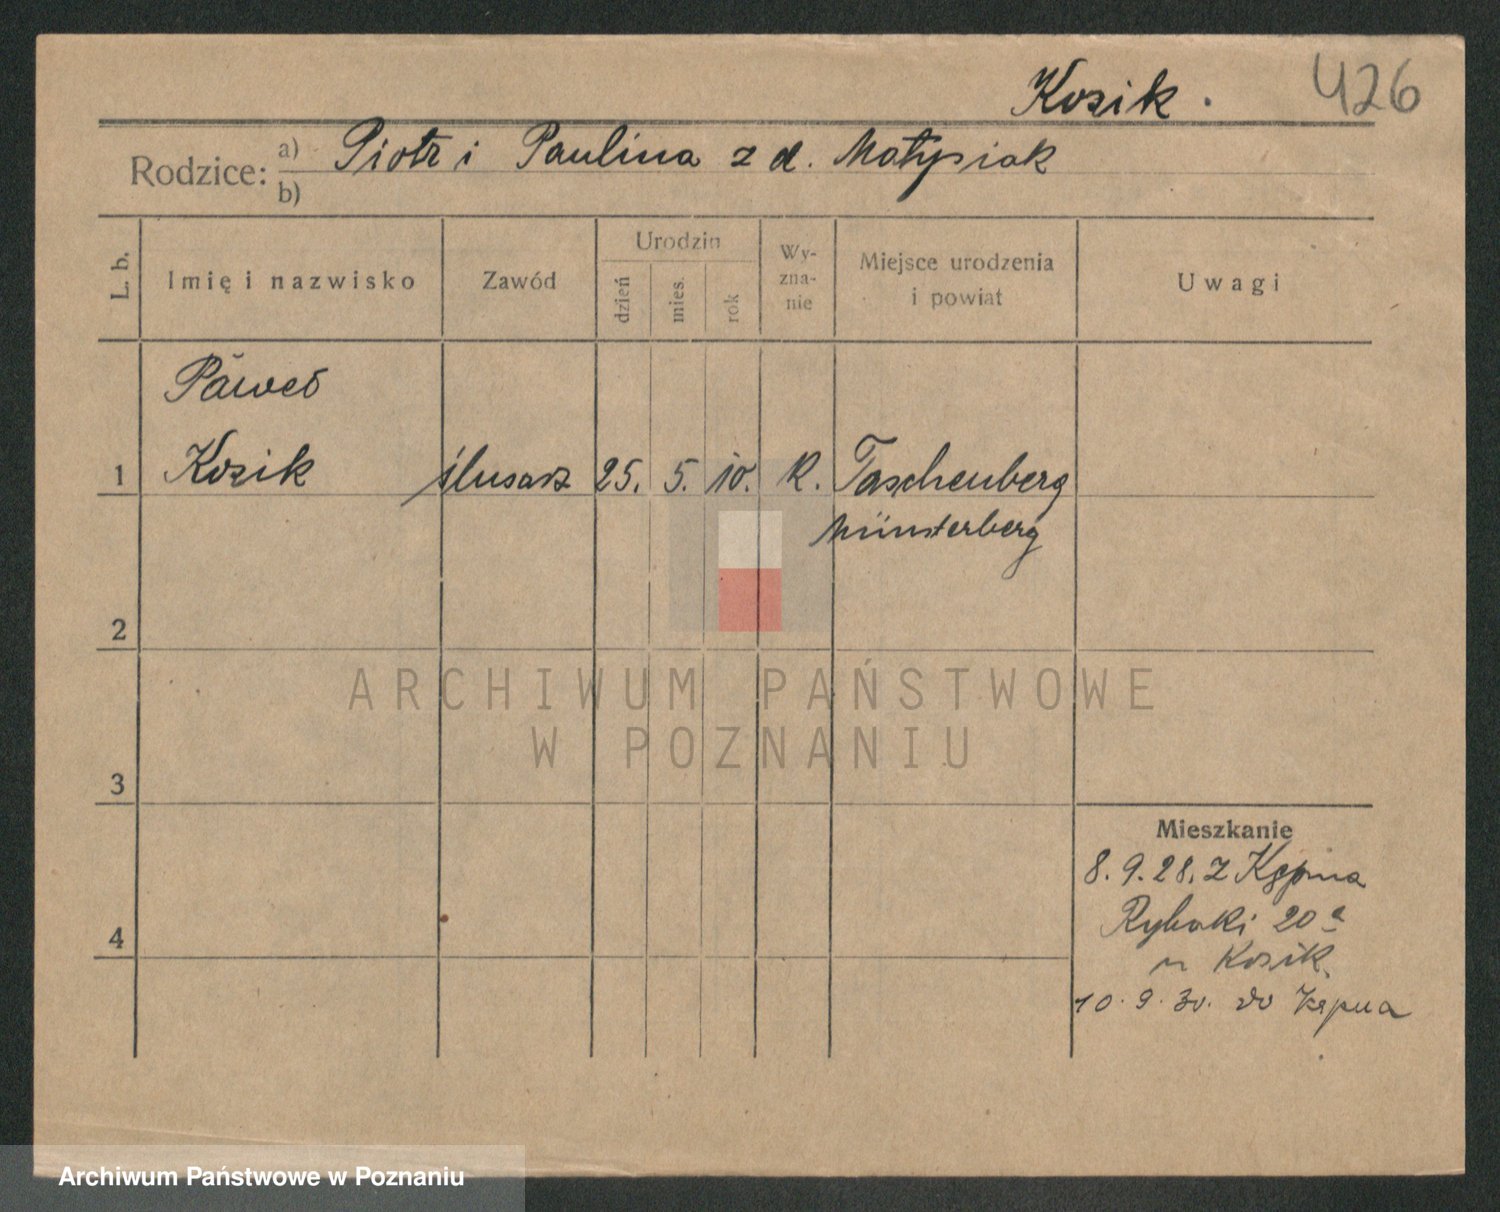 Kozik.
426
Rodzice: a) Piotr i Paulina z d. Matysiak
b)
L. b.
Imię i nazwisko
Zawód
Urodzin
dzień
mies.
rok
Wy-
zna-
nie
Miejsce urodzenia
i powiat
Uwagi
Paweł
1 Kozik ślusarz 25. 5. 10. K. Taschenberg
Münsterberg
2
3
4
Mieszkanie
8.9.28. z Kępna
Rybaki 20a
u Kozik.
10.9.30. do Kępna
ARCHIWUM PAŃSTWOWE
W POZNANIU
Archiwum Państwowe w Poznaniu